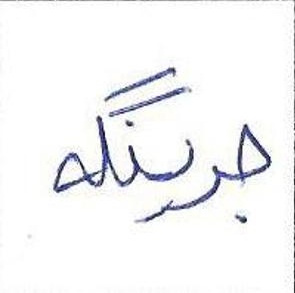 جرینگه